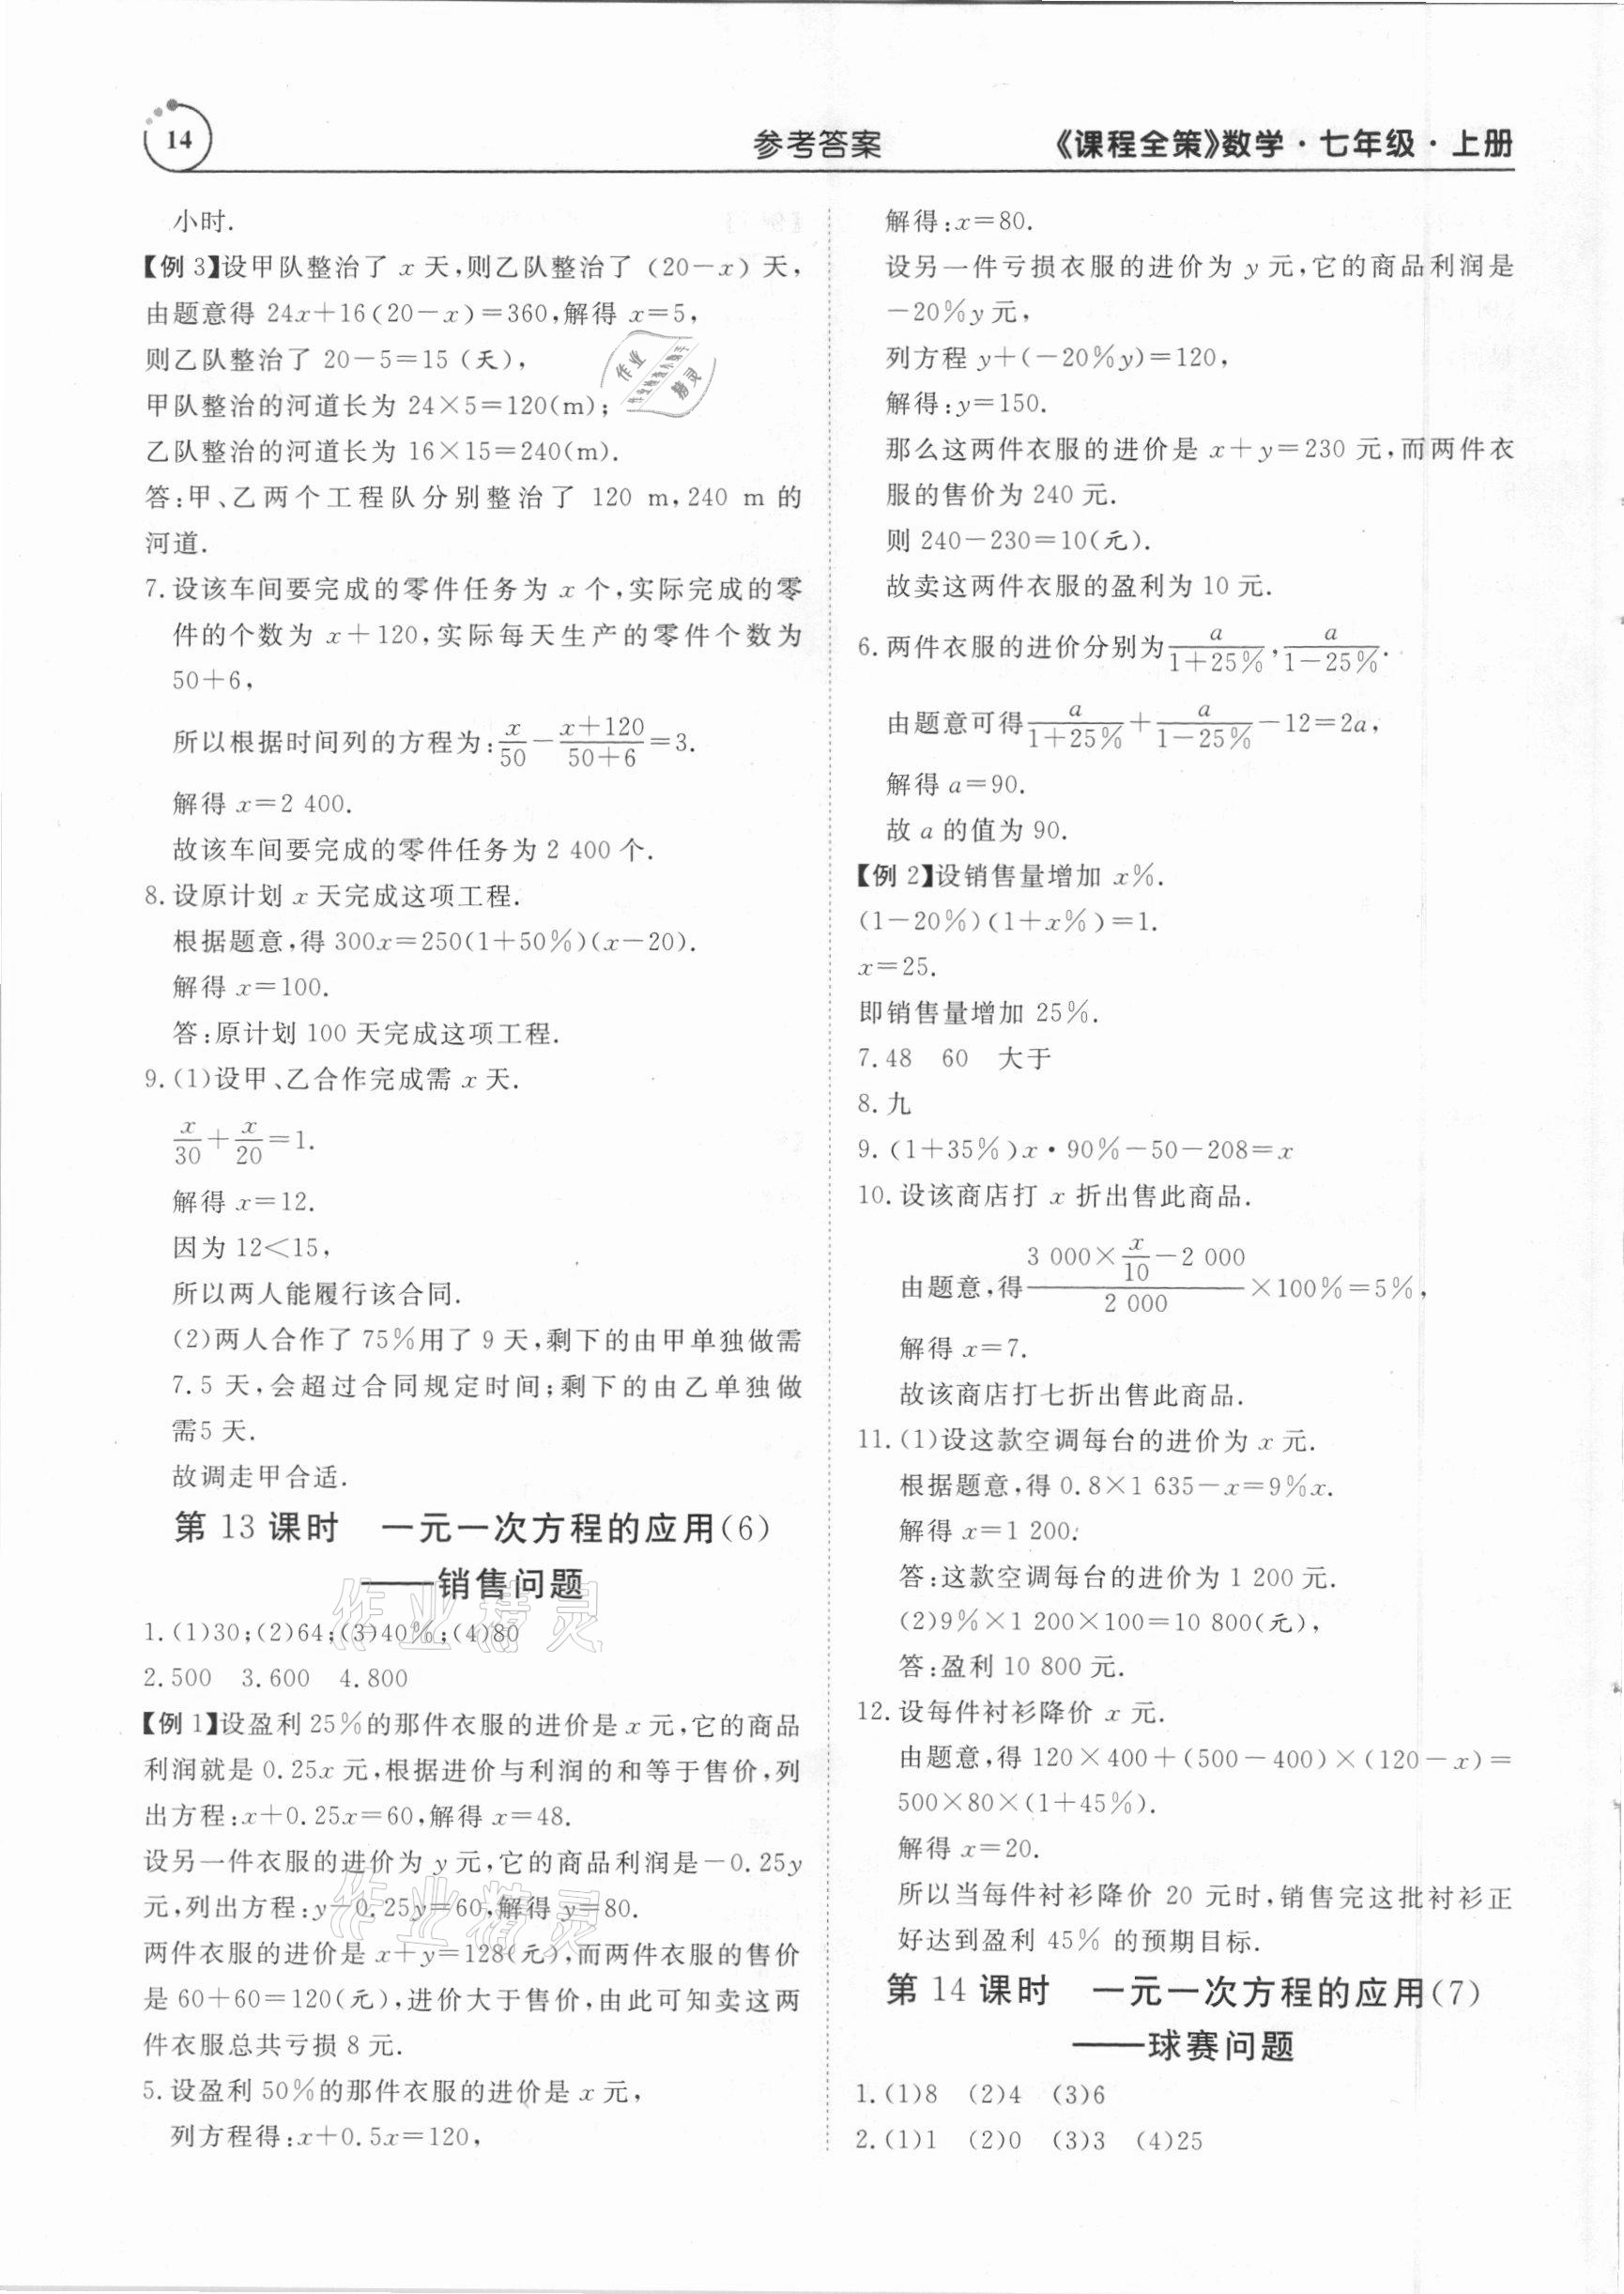 14
参考答案
《课程全策》数学·七年级·上册
小时.
【例 3】设甲队整治了 x 天,则乙队整治了 (20－x) 天,
由题意得 24x＋16(20－x)＝360,解得 x＝5,
则乙队整治了 20－5＝15 (天),
甲队整治的河道长为 24×5＝120(m);
乙队整治的河道长为 16×15＝240(m).
答:甲、乙两个工程队分别整治了 120 m,240 m 的
河道.
7. 设该车间要完成的零件任务为 x 个,实际完成的零
件的个数为 x＋120,实际每天生产的零件个数为
50＋6,
所以根据时间列的方程为:x/50－(x＋120)/(50＋6)＝3.
解得 x＝2 400.
故该车间要完成的零件任务为 2 400 个.
8. 设原计划 x 天完成这项工程.
根据题意,得 300x＝250(1＋50%)(x－20).
解得 x＝100.
答:原计划 100 天完成这项工程.
9. (1)设甲、乙合作完成需 x 天.
x/30＋x/20＝1.
解得 x＝12.
因为 12＜15,
所以两人能履行该合同.
(2)两人合作了 75%用了 9 天,剩下的由甲单独做需
7.5 天,会超过合同规定时间;剩下的由乙单独做
需5 天.
故调走甲合适.
第 13 课时 一元一次方程的应用(6)
——销售问题
1. (1)30;(2)64;(3)40%;(4)80
2.500 3.600 4.800
【例 1】设盈利 25%的那件衣服的进价是 x 元,它的商品
利润就是 0.25x 元,根据进价与利润的和等于售价,列
出方程:x＋0.25x＝60,解得 x＝48.
设另一件衣服的进价为 y 元,它的商品利润是－0.25y
元,列出方程:y－0.25y＝60,解得 y＝80.
两件衣服的进价是 x＋y＝128(元),而两件衣服的售价
是 60＋60＝120(元),进价大于售价,由此可知卖这两
件衣服总共亏损 8 元.
5. 设盈利 50%的那件衣服的进价是 x 元,
列方程得:x＋0.5x＝120,
解得:x＝80.
设另一件亏损衣服的进价为 y 元,它的商品利润是
－20%y 元,
列方程 y＋(－20%y)＝120,
解得:y＝150.
那么这两件衣服的进价是 x＋y＝230 元,而两件衣
服的售价为 240 元.
则 240－230＝10(元).
故卖这两件衣服的盈利为 10 元.
6. 两件衣服的进价分别为a/(1＋25%),a/(1－25%).
由题意可得a/(1＋25%)＋a/(1－25%)－12＝2a,
解得 a＝90.
故 a 的值为 90.
【例 2】设销售量增加 x%.
(1－20%)(1＋x%)＝1.
x＝25.
即销售量增加 25%.
7.48 60 大于
8. 九
9. (1＋35%)x·90%－50－208＝x
10. 设该商店打 x 折出售此商品.
由题意,得(3 000×x/10－2 000)/2 000×100%＝5%,
解得 x＝7.
故该商店打七折出售此商品.
11. (1)设这款空调每台的进价为 x 元.
根据题意,得 0.8×1 635－x＝9%x.
解得 x＝1 200.
答:这款空调每台的进价为 1 200 元.
(2)9%×1 200×100＝10 800(元),
答:盈利 10 800 元.
12. 设每件衬衫降价 x 元.
由题意,得 120×400＋(500－400)×(120－x)＝
500×80×(1＋45%).
解得 x＝20.
所以当每件衬衫降价 20 元时,销售完这批衬衫正
好达到盈利 45% 的预期目标.
第 14 课时 一元一次方程的应用(7)
——球赛问题
1. (1)8 (2)4 (3)6
2. (1)1 (2)0 (3)3 (4)25
作业精灵
作业精灵
作业
精灵